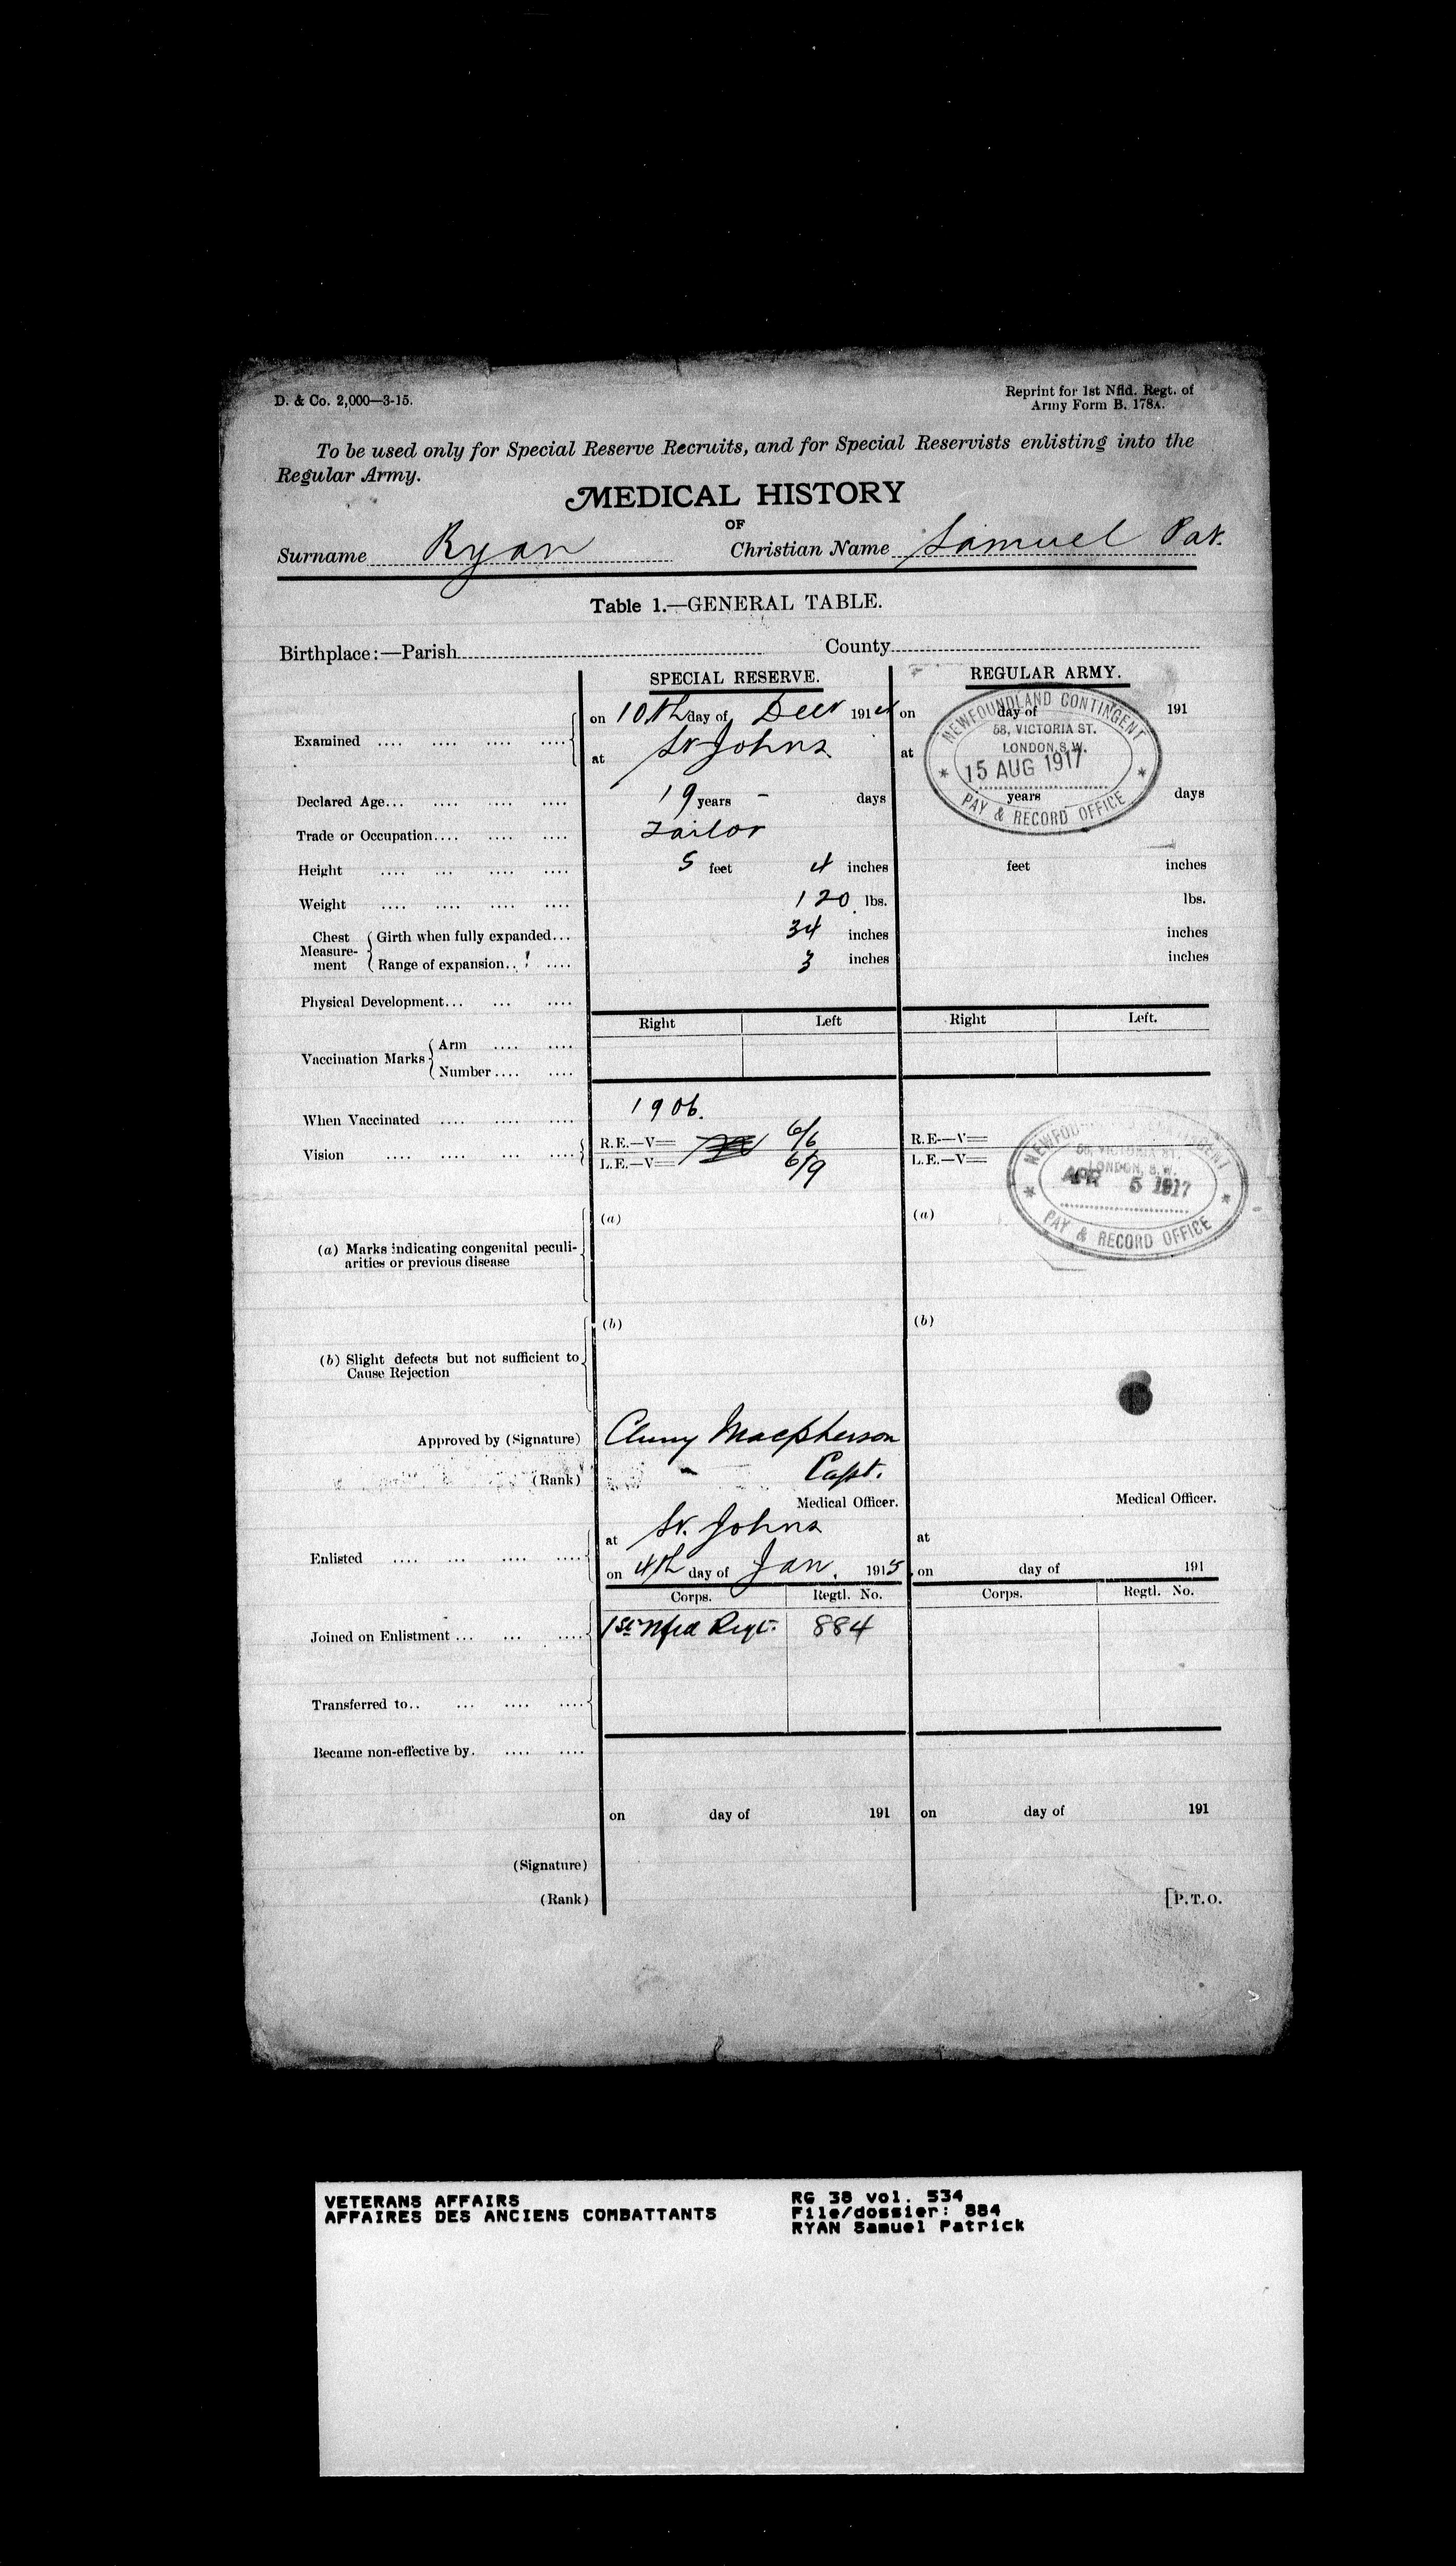 D. & Co. 2,000—3-15.
Reprint for 1st Nfld. Regt. of
Army Form B. 178A.
To be used only for Special Reserve Recruits, and for Special Reservists enlisting into the
Regular Army.
MEDICAL HISTORY
OF
Surname Ryan Christian Name Samuel Pat.
Table 1.—GENERAL TABLE.
Birthplace:—Parish County
SPECIAL RESERVE. REGULAR ARMY.
Examined .... .... .... ....
on 10th day of Decr 1914 on day of 191
at St Johns at
NEWFOUNDLAND CONTINGENT
58, VICTORIA ST.
LONDON, S.W.
15 AUG 1917
PAY & RECORD OFFICE
Declared Age... .... .... .... 19 years – days years days
Trade or Occupation.... .... .... Tailor
Height .... ... .... .... 5 feet 4 inches feet inches
Weight .... .... .... .... 120 lbs. lbs.
Chest Measurement
Girth when fully expanded... 34 inches inches
Range of expansion.. .... 3 inches inches
Physical Development... ... ....
Right Left Right Left.
Vaccination Marks
Arm .... ....
Number.... ....
When Vaccinated .... .... .... 1906.
Vision .... .... ... ....
R.E.—V= 6/6 R.E—V=
L.E.—V= 6/9 L.E.—V=
NEWFOUNDLAND CONTINGENT
58, VICTORIA ST.
LONDON, S.W.
APR 5 1917
PAY & RECORD OFFICE
(a) (a)
(a) Marks indicating congenital peculi-
arities or previous disease
(b) (b)
(b) Slight defects but not sufficient to
Cause Rejection
Approved by (Signature) Cluny Macpherson
(Rank) Capt.
Medical Officer. Medical Officer.
Enlisted .... ... .... ....
at St. Johns at
on 4th day of Jan. 1915 on day of 191
Corps. Regtl. No. Corps. Regtl. No.
Joined on Enlistment ... ... .... 1st Nfld Regt. 884
Transferred to.. ... .... ....
Became non-effective by. .... ....
on day of 191 on day of 191
(Signature)
(Rank)
[P.T.O.
VETERANS AFFAIRS
AFFAIRES DES ANCIENS COMBATTANTS
RG 38 vol. 534
File/dossier: 884
RYAN Samuel Patrick